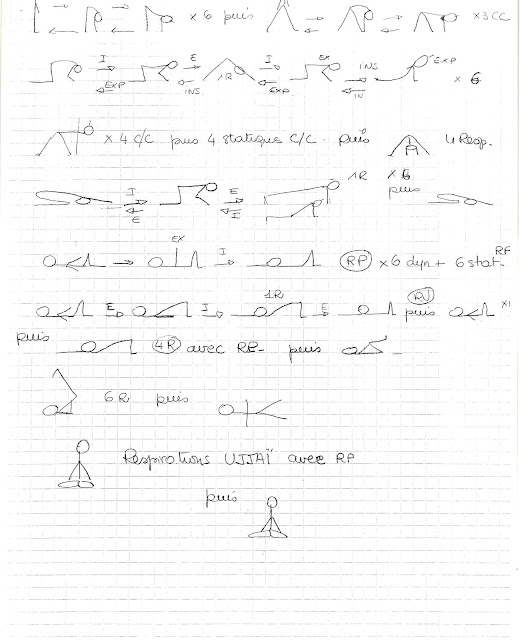 x 6 puis x 3 CC
I E I EX INS EXP
EXP INS. 1R EXP IN x 6
x 4 C/C puis 4 statique C/C. puis 4 Resp.
I E 1R x 6
E I puis
EX I RP x 6 dyn + 6 stat. RF
E I 1R E puis x1
puis 4R avec RP- puis
6R puis
Respirations UJJAÏ avec RP
puis